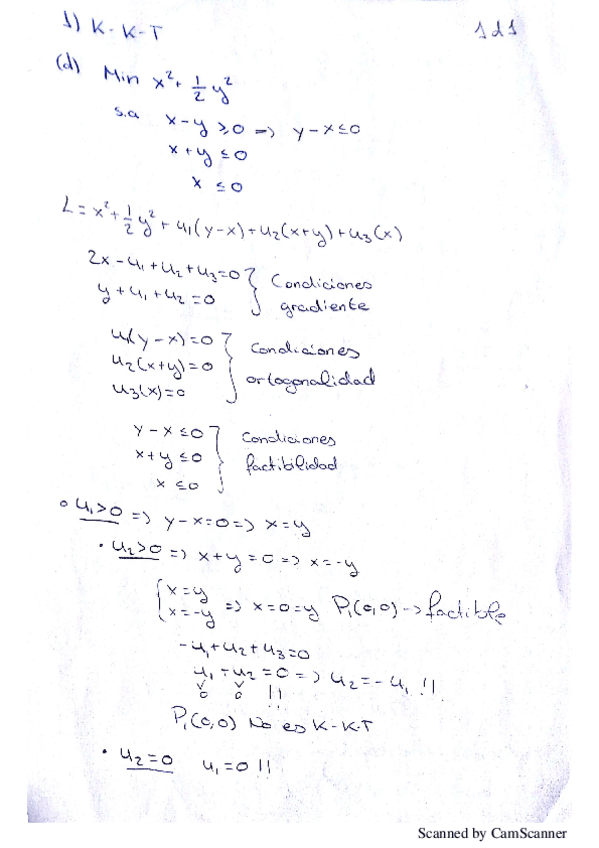 1) K-K-T
1 d 1
(d) Min x² + 1/2 y²
s.a x-y ≥ 0 => y-x ≤ 0
x+y ≤ 0
x ≤ 0
L = x² + 1/2 y² + u₁(y-x) + u₂(x+y) + u₃(x)
2x - u₁ + u₂ + u₃ = 0 } Condiciones
y + u₁ + u₂ = 0 } gradiente
u₁(y-x) = 0 } Condiciones
u₂(x+y) = 0 } ortogonalidad
u₃(x) = 0
y-x ≤ 0 } Condiciones
x+y ≤ 0 } factibilidad
x ≤ 0
u₁>0 => y-x=0 => x=y
• u₂>0 => x+y=0 => x=-y
{ x=y
x=-y => x=0=y P₁(0,0) -> factible
-u₁+u₂+u₃=0
u₁+u₂=0 => u₂=-u₁ !!
v v
0 0 !!
P₁(0,0) No es K-K-T
• u₂=0 u₁=0 !!
Scanned by CamScanner